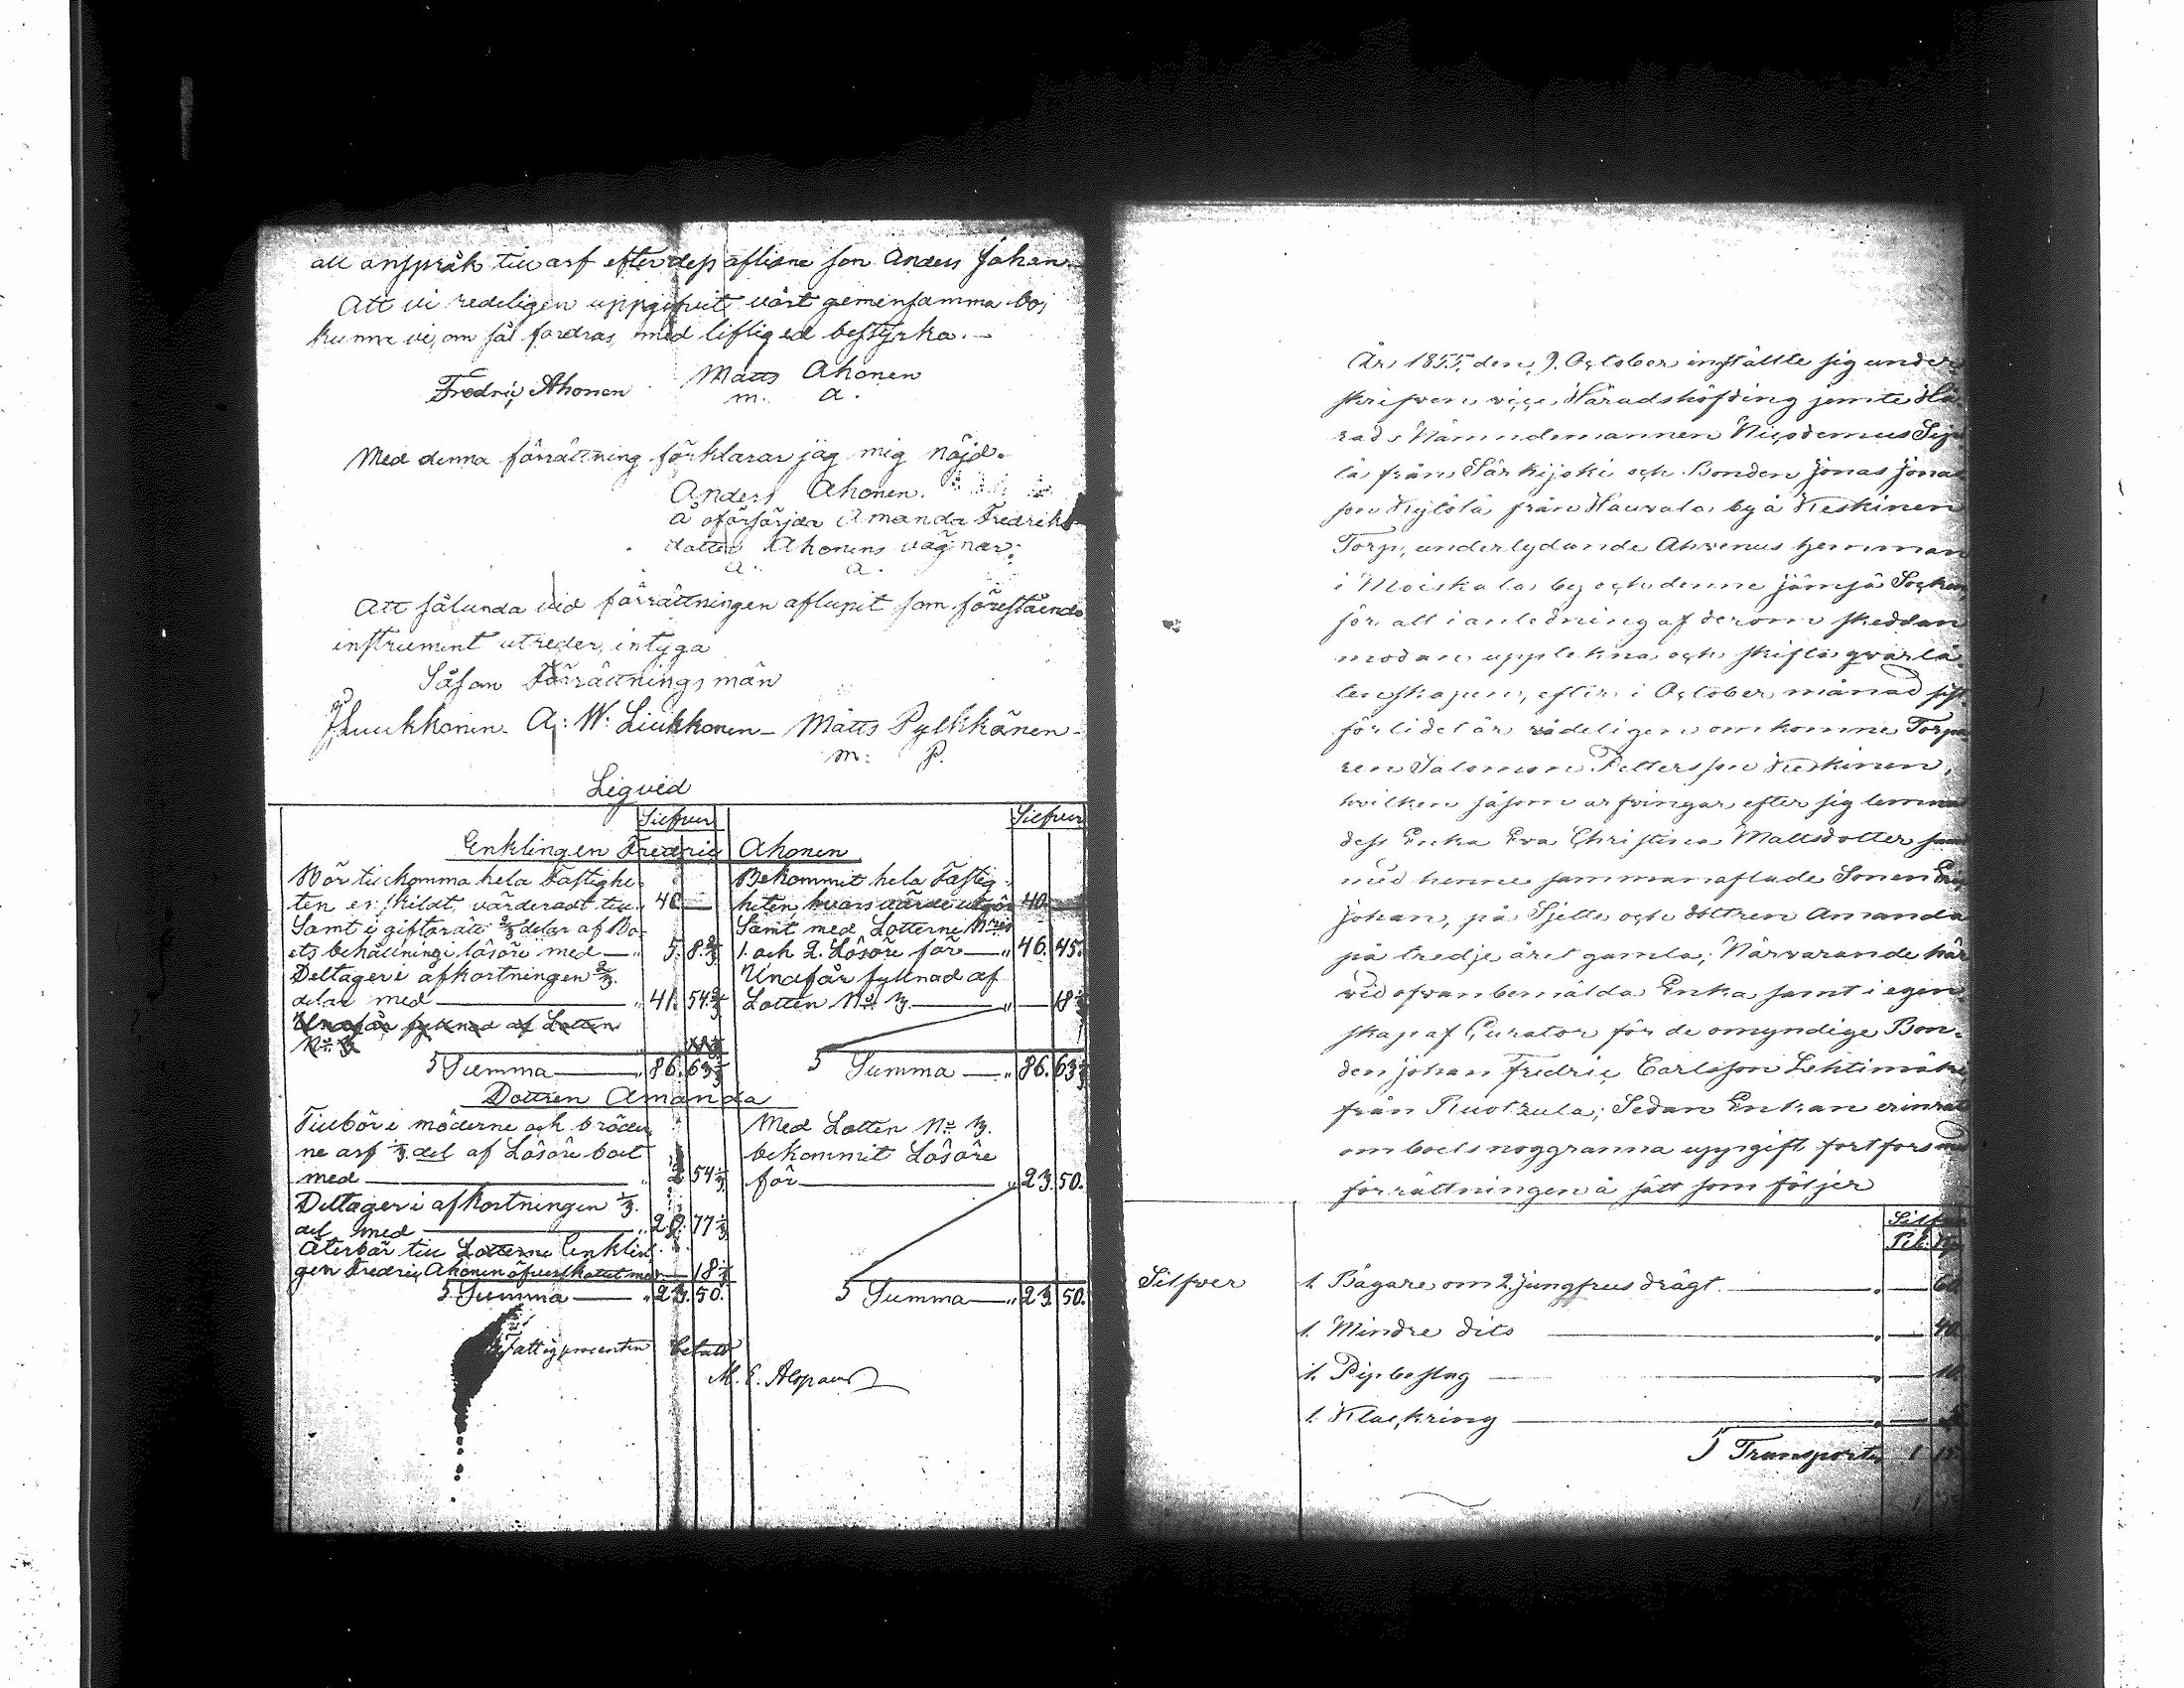 all anspråk till arf efter dess aflidne son Anders Johan.
Att vi redeligen uppgifvit vårt gemensamma bo,
kunna vi, om så fordras, med liflig ed bestyrka.
Fredric Ahonen Matts Ahonen
m. a.
Med denna förrättning förklarar jag mig nöjd.
Anders Ahonen.
å oförsörjda Amanda Fredriks
dotter Ahonens vägnar:
a. a.
Att sålunda vid förrättningen aflupit som förestående
instrument utreder, intyga
Såsom Förrättningsmän
J. Luukkonen. A: W: Liukkonen – Matts Pylkkänen –
m: P.
Liqvid
Silfver Silfver
Enklingen Fredric Ahonen
Bör tillkomma hela Fastighe-
ten enskildt, värderadt till 40 —
Samt i giftorätt 2/3 delar af Bo-
ets behållning i lösöre med — " 5. 8 2/3
Deltager i afkortningen 2/3.
delar med — " 41. 54 2/3
Undfår fyllnad af Lotten
No 3
S Summa — " 86. 63 1/3
Bekommit hela Fastig-
heten, hvars värde utgör 40. —
Samt med Lotterne Nris
1. och 2. Lösöre för — " 46. 45.
Undfår fyllnad af
Lotten No 3. — " — 18 1/3
S Summa — " 86. 63 1/3
Dottren Amanda
Tillbör i möderne och bröder-
ne arf 1/3 del af Lösöre boet
med — " 2 54 1/3
Deltager i afkortningen 1/3.
del med — " 20. 77 1/3
Återbär till Lotterne Enklin-
gen Fredric Ahonen öfverskottet med — 18 1/3
S Summa — " 23. 50.
Med Lotten No 3.
bekommit Lösöre
för — " 23. 50.
S Summa — " 23. 50.
Fattigprocenten betald
M. E. Alopaeus
År 1855, den 9. October inställte sig under
skrifven vice Häradshöfding jemte Hä-
rads Nämndemannen Nicodemus Sip
lä från Särkijoki och Bonden Jonas Jonas
son Kylölä från Hauvala by å Keskinen
Torp, underlydande Ahvenus hemman
i Moiskala by och denne Jämsä Socken
för att i anledning af derom skeddan
modan uppteckna och skifta qvarlå-
tenskapen, efter i October månad sist-
förlidet år rådeligen omkomne Torpa
ren Salomon Pettersson Keskinen,
hvilken såsom arfvingar efter sig lemnat
dess Enka Eva Christina Mattsdotter samt
med henne sammanaflade Sonen
Johan, på Sjette och dottren Amanda
på tredje året gamla; Närvarande här
vid ofvanbemälda Enka samt i egen-
skap af Curator för de omyndige Bon-
den Johan Fredric Carlsson Lehtimäki
från Ruotzula; Sedan Enkan erinrats
om boets noggranna uppgift fortfors med
förrättningen å sätt som följer
Silfver
Silfver 1. Bägare om 2. jungfrus drägt. — 60
1. Mindre dito — 40
1. Pipbeslag — 10
1. Klackring —
S Transport 1